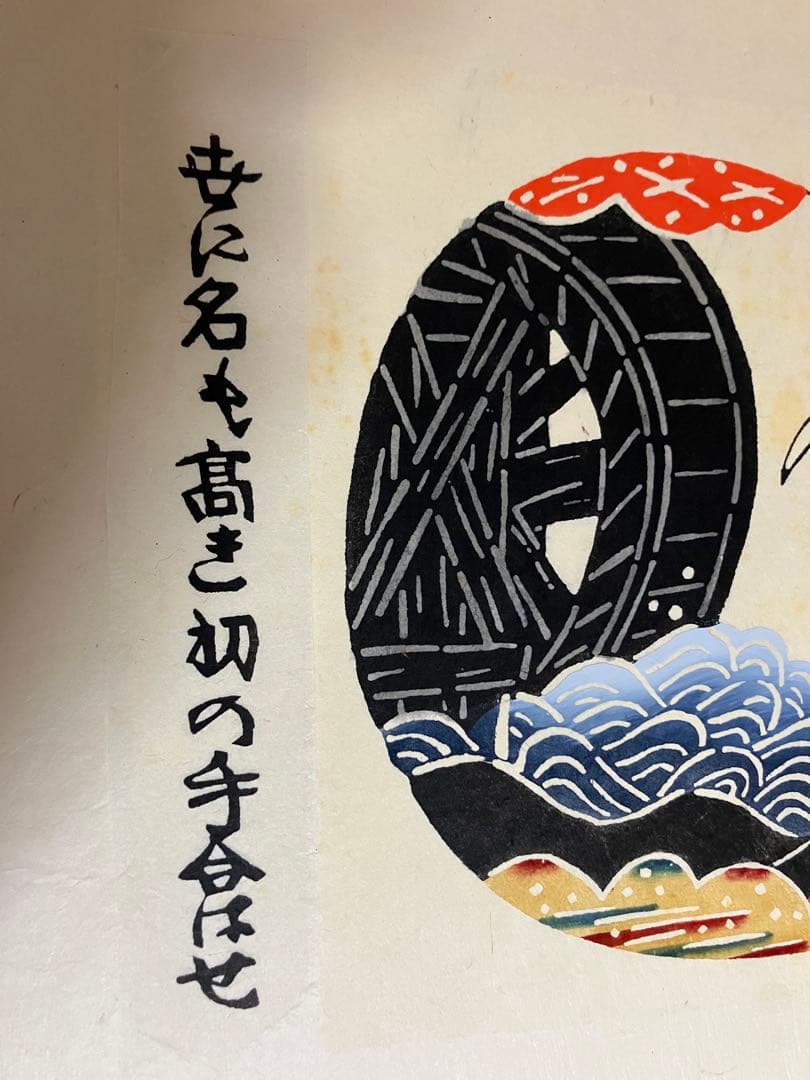 世に名も高き初の手合はせ